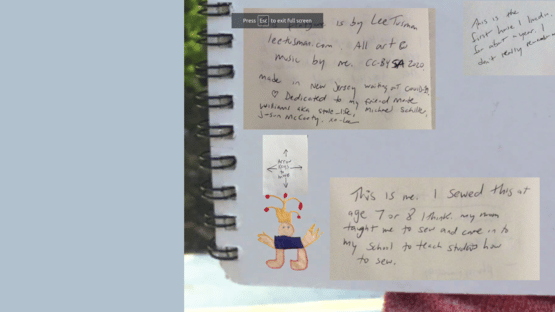 Press Esc to exit full screen
is by Lee Tusman
leetusman.com. All art &
music by me. CC-BY-SA 2020
made in New Jersey waiting at
♡ Dedicated to my friend Mark
aka stole-life, Michael
McCarty,
This is the
first have I
for about a year. I
don't really remember
arrow
keys
to
move
This is me. I sewed this at
age 7 or 8 I think. my mom
taught me to sew and came in to
my school to teach students how
to sew.